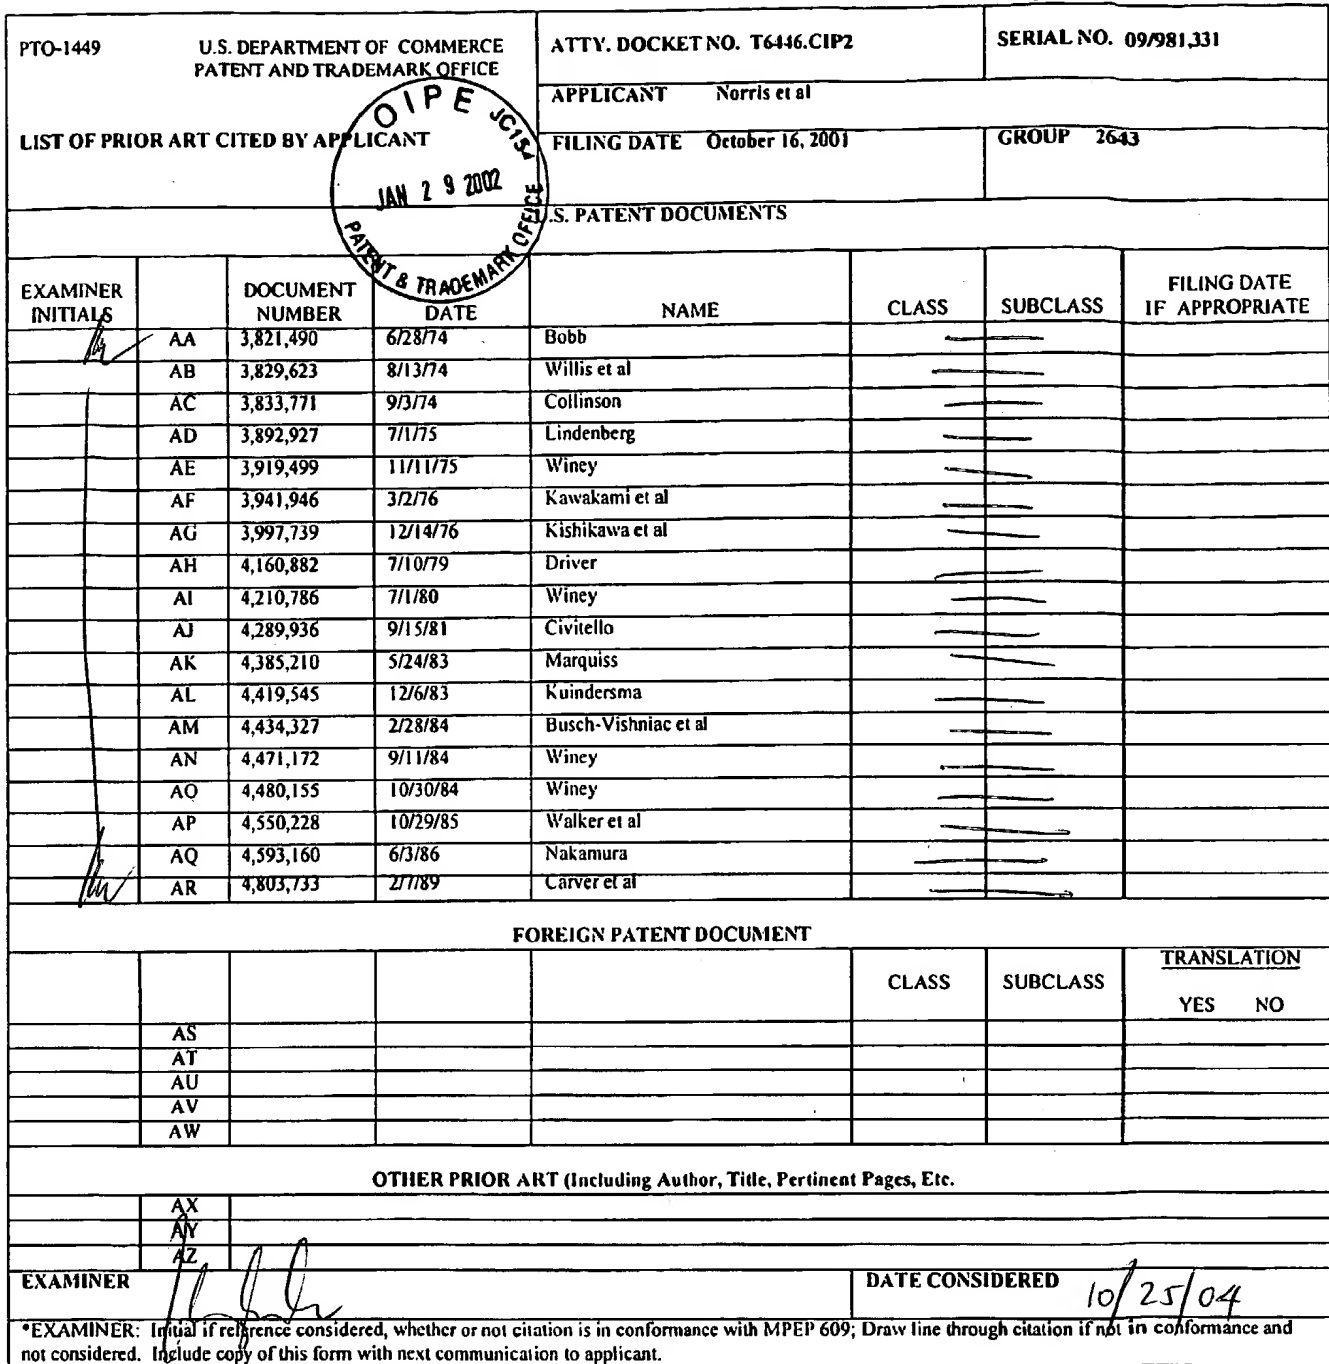 PTO-1449 U.S. DEPARTMENT OF COMMERCE
PATENT AND TRADEMARK OFFICE
ATTY. DOCKET NO. T6446.CIP2
SERIAL NO. 09/981,331
APPLICANT Norris et al
LIST OF PRIOR ART CITED BY APPLICANT
FILING DATE October 16, 2001
GROUP 2643
OIPE JC154
JAN 29 2002
PATENT & TRADEMARK OFFICE
U.S. PATENT DOCUMENTS
EXAMINER INITIALS DOCUMENT NUMBER DATE NAME CLASS SUBCLASS FILING DATE IF APPROPRIATE
AA 3,821,490 6/28/74 Bobb
AB 3,829,623 8/13/74 Willis et al
AC 3,833,771 9/3/74 Collinson
AD 3,892,927 7/1/75 Lindenberg
AE 3,919,499 11/11/75 Winey
AF 3,941,946 3/2/76 Kawakami et al
AG 3,997,739 12/14/76 Kishikawa et al
AH 4,160,882 7/10/79 Driver
AI 4,210,786 7/1/80 Winey
AJ 4,289,936 9/15/81 Civitello
AK 4,385,210 5/24/83 Marquiss
AL 4,419,545 12/6/83 Kuindersma
AM 4,434,327 2/28/84 Busch-Vishniac et al
AN 4,471,172 9/11/84 Winey
AO 4,480,155 10/30/84 Winey
AP 4,550,228 10/29/85 Walker et al
AQ 4,593,160 6/3/86 Nakamura
AR 4,803,733 2/7/89 Carver et al
FOREIGN PATENT DOCUMENT
CLASS SUBCLASS TRANSLATION
YES NO
AS
AT
AU
AV
AW
OTHER PRIOR ART (Including Author, Title, Pertinent Pages, Etc.
AX
AY
AZ
EXAMINER
DATE CONSIDERED 10/25/04
*EXAMINER: Initial if reference considered, whether or not citation is in conformance with MPEP 609; Draw line through citation if not in conformance and
not considered. Include copy of this form with next communication to applicant.